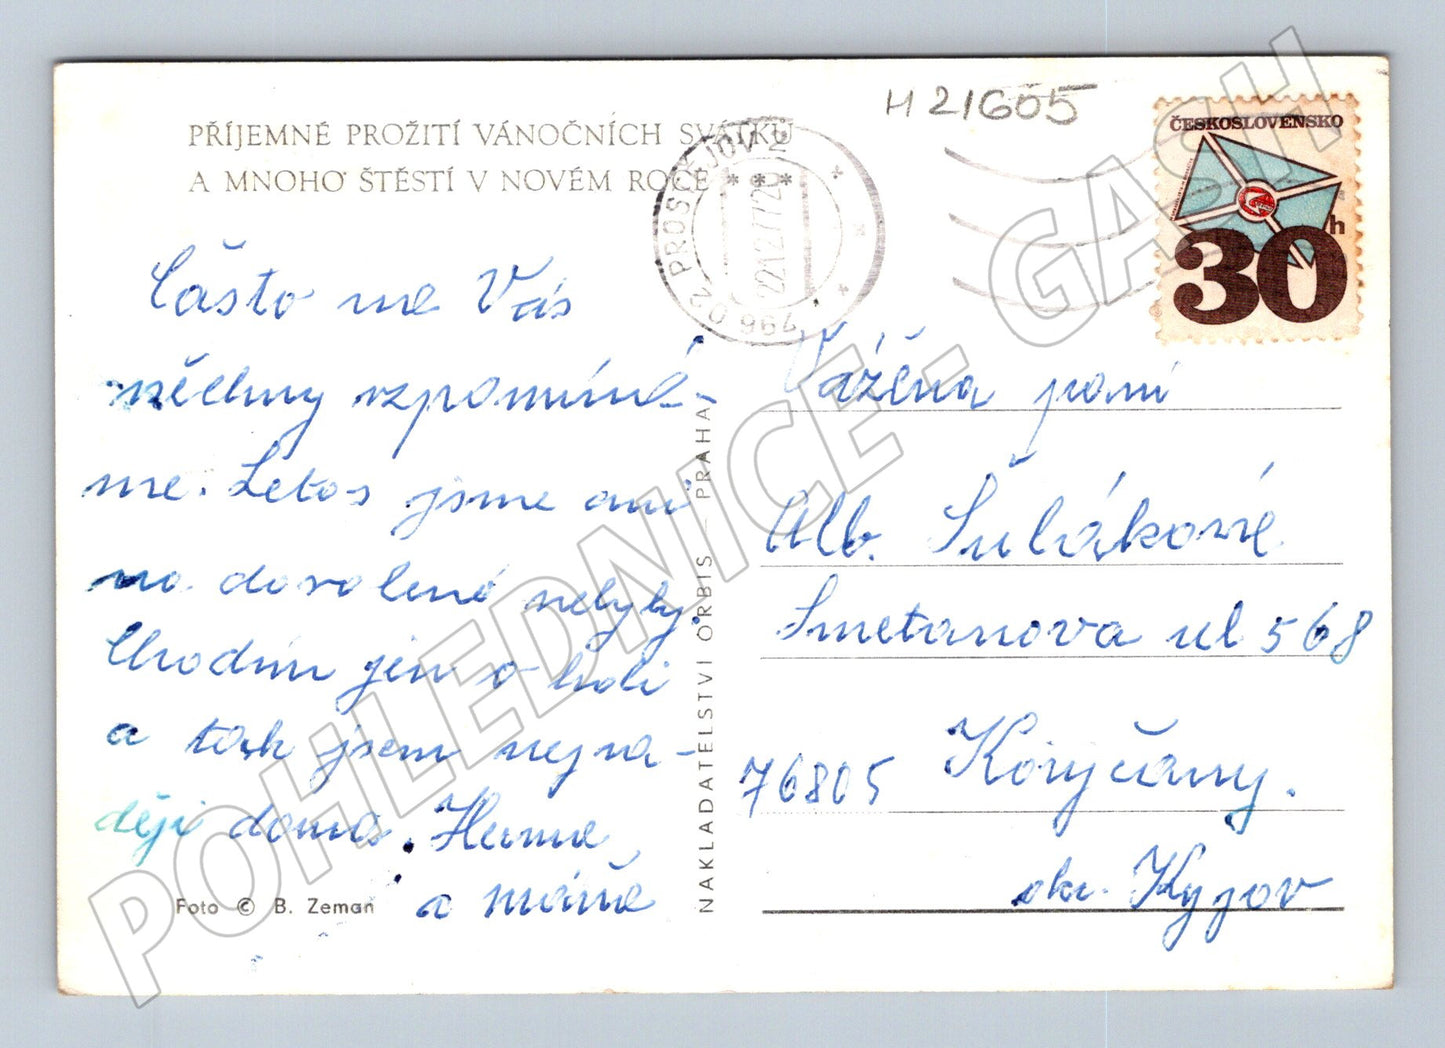 PŘÍJEMNÉ PROŽITÍ VÁNOČNÍCH SVÁTKŮ
A MNOHO ŠTĚSTÍ V NOVÉM ROCE
H 21605
ČESKOSLOVENSKO
30 h
PROSTĚJOV 2
22.12.77-20
796 02
Často na Vás
všechny vzpomíná-
me. Letos jsme ani
na dovolené nebyly.
Chodím jen o holi
a tak jsem nejra-
ději doma.
a
Foto © B. Zeman
NAKLADATELSTVÍ ORBIS – PRAHA
Vážená paní
Alb. Šulákové
Smetanova ul 568
76805 Koryčany.
okr. Kyjov
POHLEDNICE - GASH